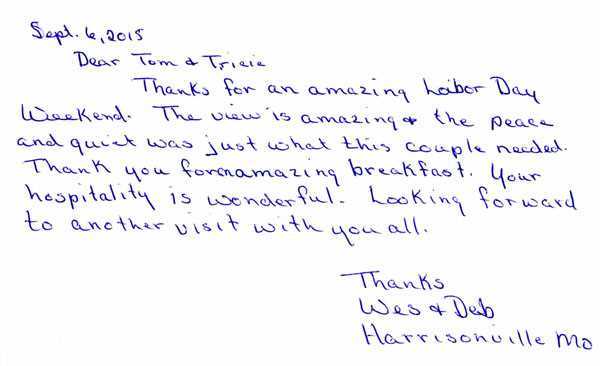 Sept. 6, 2015
Dear Tom & Tricie
Thanks for an amazing Labor Day
Weekend. The view is amazing & the peace
and quiet was just what this couple needed.
Thank you for an amazing breakfast. Your
hospitality is wonderful. Looking forward
to another visit with you all.
Thanks
Wes & Deb
Harrisonville Mo